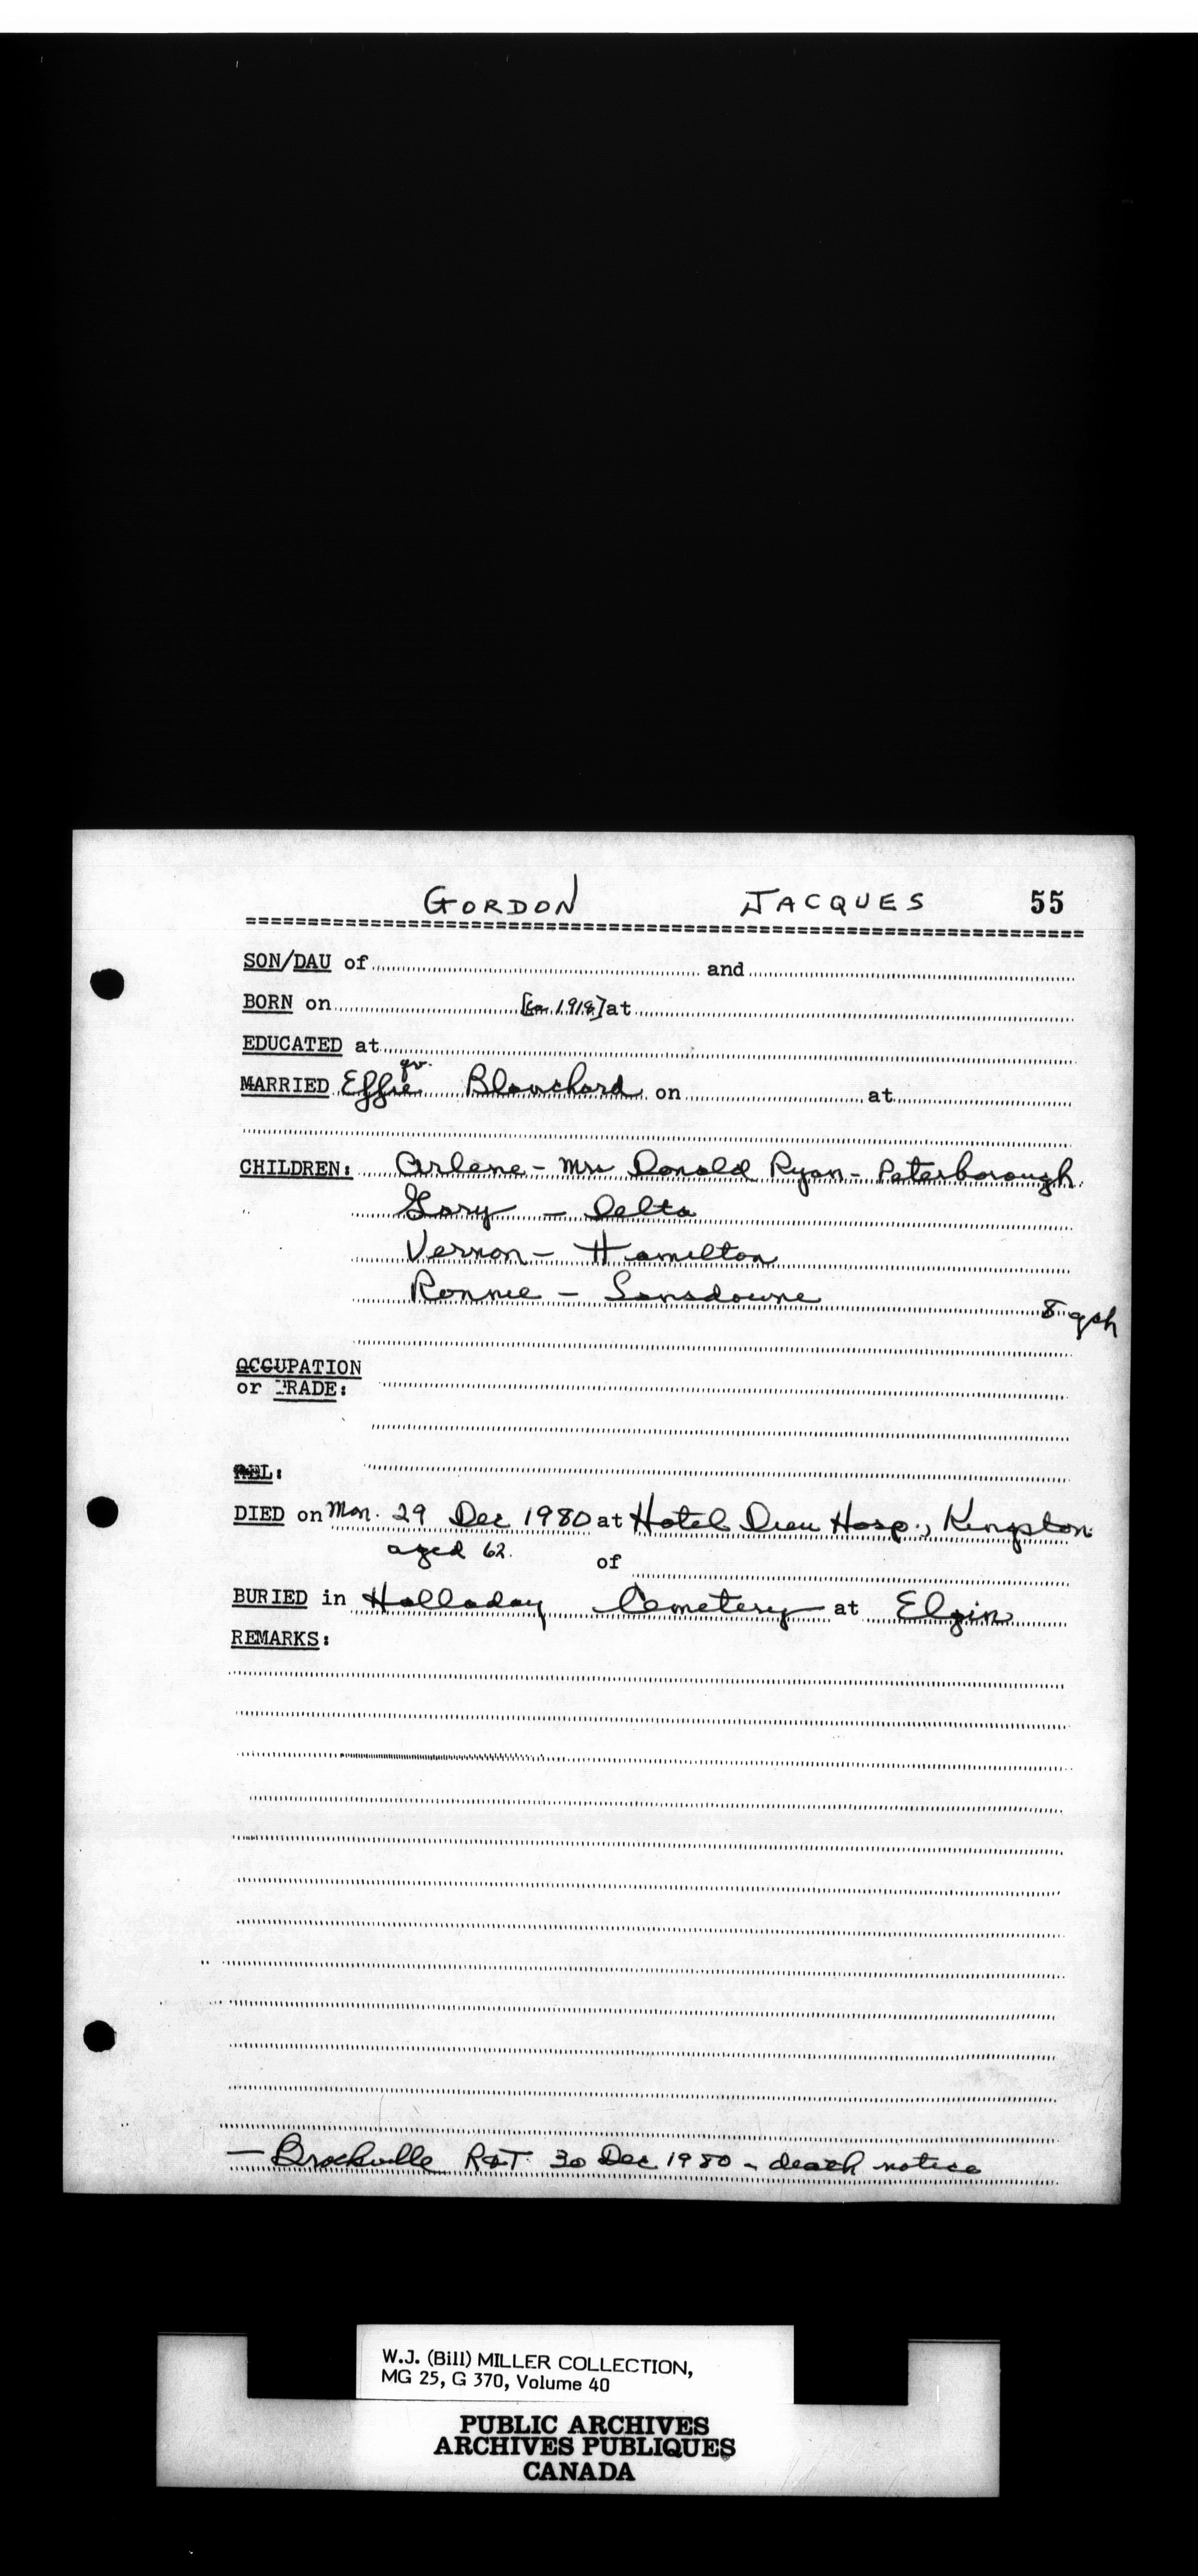 GORDON JACQUES 55
SON/DAU of and
BORN on [ca 1918] at
EDUCATED at
qv.
MARRIED Effie Blanchard on at
CHILDREN: Arlene - Mrs Donald Ryan - Peterborough
Gary - Delta
Vernon - Hamilton
Ronnie - Lansdowne
8 gch
OCCUPATION
or TRADE:
REL:
DIED on Mon. 29 Dec 1980 at Hotel Dieu Hosp., Kingston
aged 62. of
BURIED in Halladay Cemetery at Elgin
REMARKS:
— Brockville R&T 30 Dec 1980 - death notice
W.J. (Bill) MILLER COLLECTION,
MG 25, G 370, Volume 40
PUBLIC ARCHIVES
ARCHIVES PUBLIQUES
CANADA